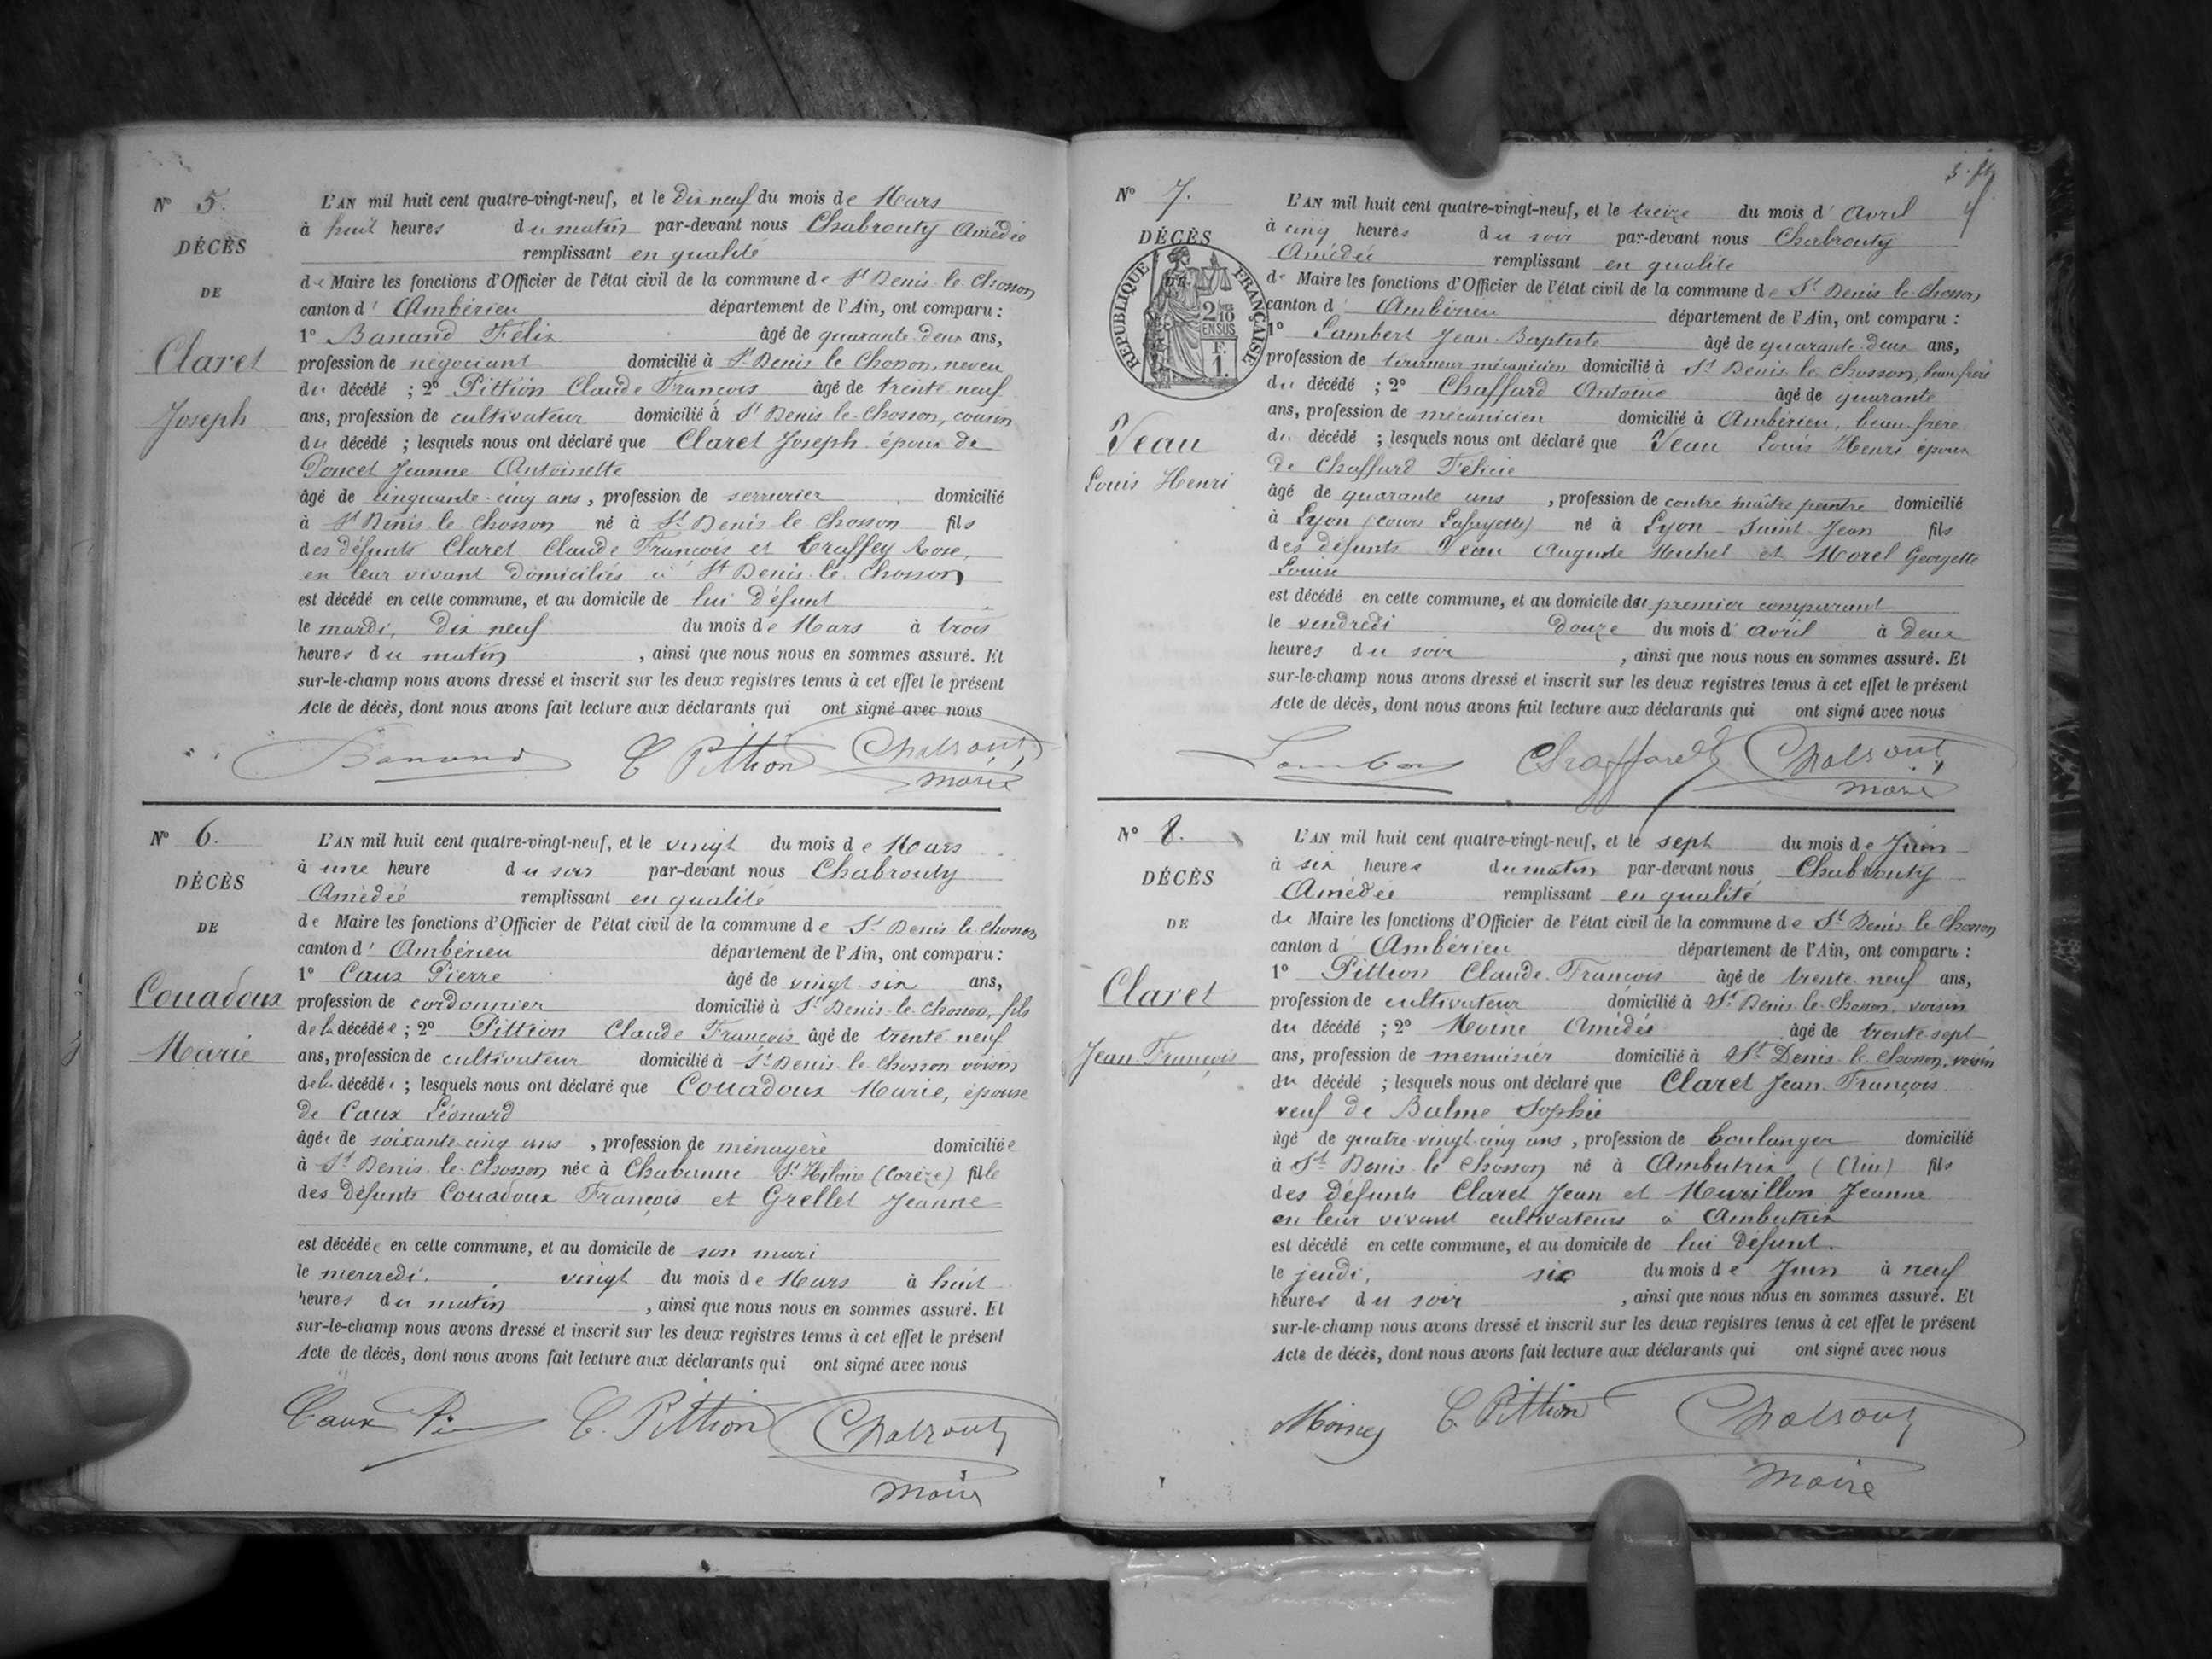 N° 5.
DÉCÈS
DE
Claret
Joseph
L'AN mil huit cent quatre-vingt-neuf, et le dix neuf du mois de Mars
à huit heures du matin par-devant nous Chabrouty Amédée
remplissant en qualité
de Maire les fonctions d'Officier de l'état civil de la commune de St Denis le Chosson
canton d' Ambérieu département de l'Ain, ont comparu :
1° Banand Félix âgé de quarante deux ans,
profession de négociant domicilié à St Denis le Chosson, neveu
du décédé ; 2° Pittion Claude François âgé de trente neuf
ans, profession de cultivateur domicilié à St Denis le Chosson, cousin
du décédé ; lesquels nous ont déclaré que Claret Joseph époux de
Poncet Jeanne Antoinette
âgé de cinquante-cinq ans, profession de serrurier domicilié
à St Denis le Chosson né à St Denis le Chosson fils
des défunts Claret Claude François et Rose,
en leur vivant domiciliés à St Denis le Chosson
est décédé en cette commune, et au domicile de lui défunt
le mardi, dix neuf du mois de Mars à trois
heures du matin, ainsi que nous nous en sommes assuré. Et
sur-le-champ nous avons dressé et inscrit sur les deux registres tenus à cet effet le présent
Acte de décès, dont nous avons fait lecture aux déclarants qui ont signé avec nous
Banand C Pittion Chabrouty
maire
N° 6.
DÉCÈS
DE
Couadoux
Marie
L'AN mil huit cent quatre-vingt-neuf, et le vingt du mois de Mars
à une heure du soir par-devant nous Chabrouty
Amédée remplissant en qualité
de Maire les fonctions d'Officier de l'état civil de la commune de St Denis le Chosson
canton d' Ambérieu département de l'Ain, ont comparu :
1° Caux Pierre âgé de vingt six ans,
profession de cordonnier domicilié à St Denis le Chosson, fils
de la décédée ; 2° Pittion Claude François âgé de trente neuf
ans, profession de cultivateur domicilié à St Denis le Chosson voisin
de la décédée ; lesquels nous ont déclaré que Couadoux Marie, épouse
de Caux Léonard
âgée de soixante-cinq ans, profession de ménagère domiciliée
à St Denis le Chosson née à Chabanne St Hilaire (Corèze) fille
des défunts Couadoux François et Grellet Jeanne
est décédée en cette commune, et au domicile de son mari
le mercredi, vingt du mois de Mars à huit
heures du matin, ainsi que nous nous en sommes assuré. Et
sur-le-champ nous avons dressé et inscrit sur les deux registres tenus à cet effet le présent
Acte de décès, dont nous avons fait lecture aux déclarants qui ont signé avec nous
Caux C. Pittion Chabrouty
maire
N° 7.
DÉCÈS
RÉPUBLIQUE FRANÇAISE
DE
2/10
EN SUS
F.
1.
Veau
Louis Henri
L'AN mil huit cent quatre-vingt-neuf, et le treize du mois d' Avril
à cinq heures du soir par-devant nous Chabrouty
Amédée remplissant en qualité
de Maire les fonctions d'Officier de l'état civil de la commune de St Denis le Chosson
canton d' Ambérieu département de l'Ain, ont comparu :
1° Lambert Jean-Baptiste âgé de quarante-deux ans,
profession de tourneur mécanicien domicilié à St Denis le Chosson, beau frère
du décédé ; 2° Chaffard Antoine âgé de quarante
ans, profession de mécanicien domicilié à Ambérieu, beau frère
du décédé ; lesquels nous ont déclaré que Veau Louis Henri époux
de Chaffard Félicie
âgé de quarante ans, profession de contre maître peintre domicilié
à Lyon (cours Lafayette) né à Lyon - Saint Jean fils
des défunts Veau Auguste Michel et Morel Georgette
Louise
est décédé en cette commune, et au domicile du premier comparant
le vendredi douze du mois d' avril à deux
heures du soir, ainsi que nous nous en sommes assuré. Et
sur-le-champ nous avons dressé et inscrit sur les deux registres tenus à cet effet le présent
Acte de décès, dont nous avons fait lecture aux déclarants qui ont signé avec nous
Chaffard Chabrouty
maire
N° 8.
DÉCÈS
DE
Claret
Jean François
L'AN mil huit cent quatre-vingt-neuf, et le sept du mois de Juin
à six heures du matin par-devant nous Chabrouty
Amédée remplissant en qualité
de Maire les fonctions d'Officier de l'état civil de la commune de St Denis le Chosson
canton d' Ambérieu département de l'Ain, ont comparu :
1° Pittion Claude François âgé de trente neuf ans,
profession de cultivateur domicilié à St Denis le Chosson, voisin
du décédé ; 2° Moine Amédée âgé de trente sept
ans, profession de menuisier domicilié à St Denis le Chosson, voisin
du décédé ; lesquels nous ont déclaré que Claret Jean François
veuf de Balme Sophie
âgé de quatre-vingt-cinq ans, profession de boulanger domicilié
à St Denis le Chosson né à Ambutrix (Ain) fils
des défunts Claret Jean et Jeanne
en leur vivant cultivateurs à Ambutrix
est décédé en cette commune, et au domicile de lui défunt.
le jeudi, six du mois de Juin à neuf
heures du soir, ainsi que nous nous en sommes assuré. Et
sur-le-champ nous avons dressé et inscrit sur les deux registres tenus à cet effet le présent
Acte de décès, dont nous avons fait lecture aux déclarants qui ont signé avec nous
C Pittion Chabrouty
maire